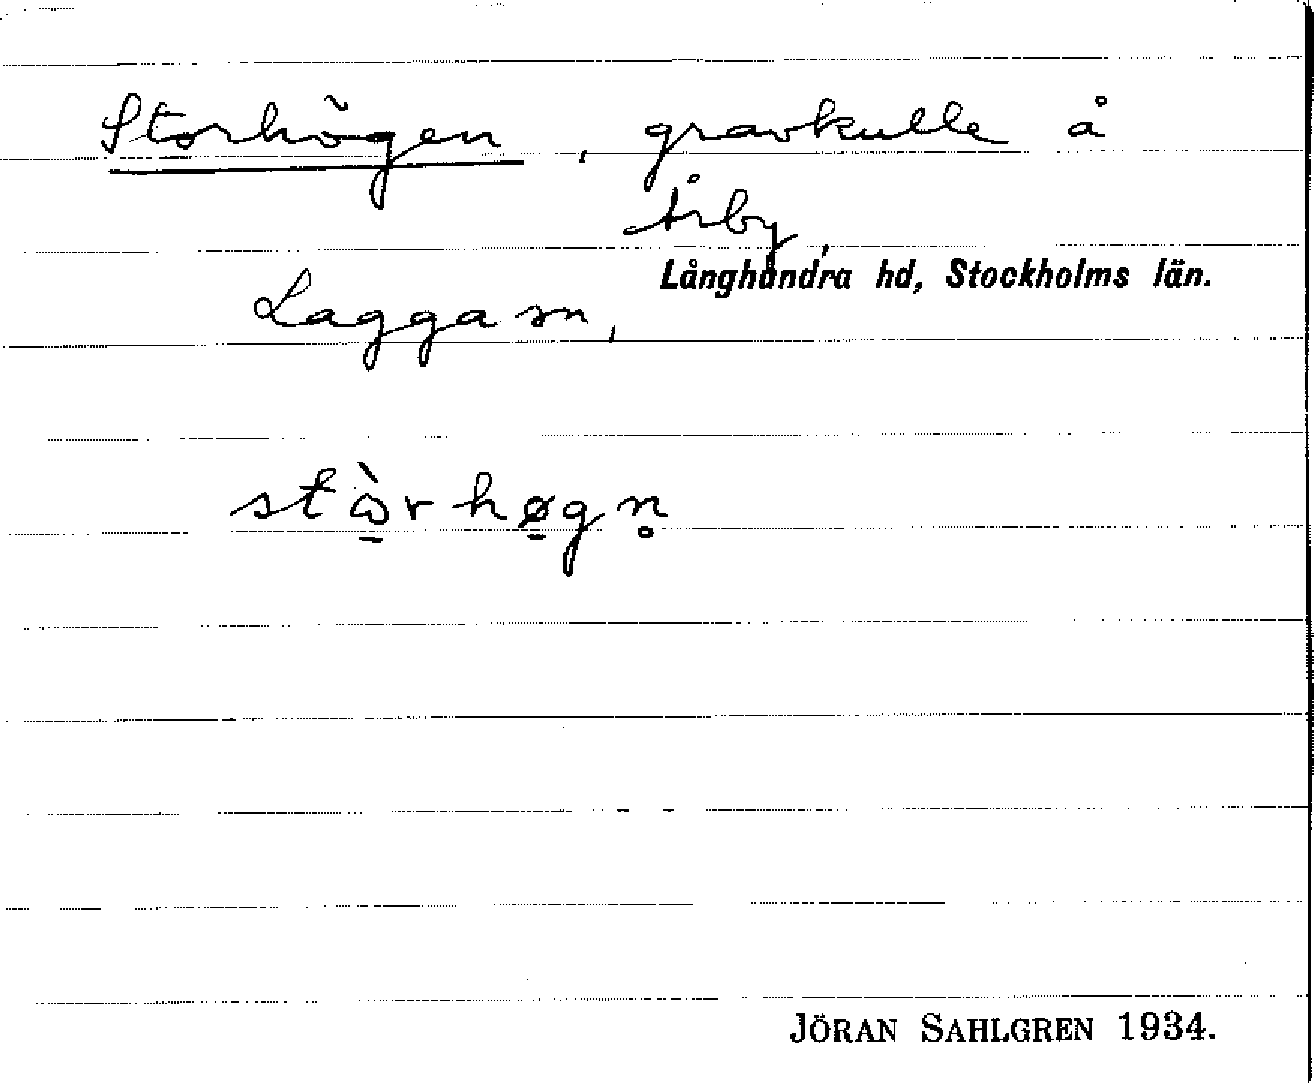 Storhögen, gravkulle å
Årby,
Långhundra hd, Stockholms län.
Lagga sn,
stὼ̠rhø̠gn̥
JÖRAN SAHLGREN 1934.